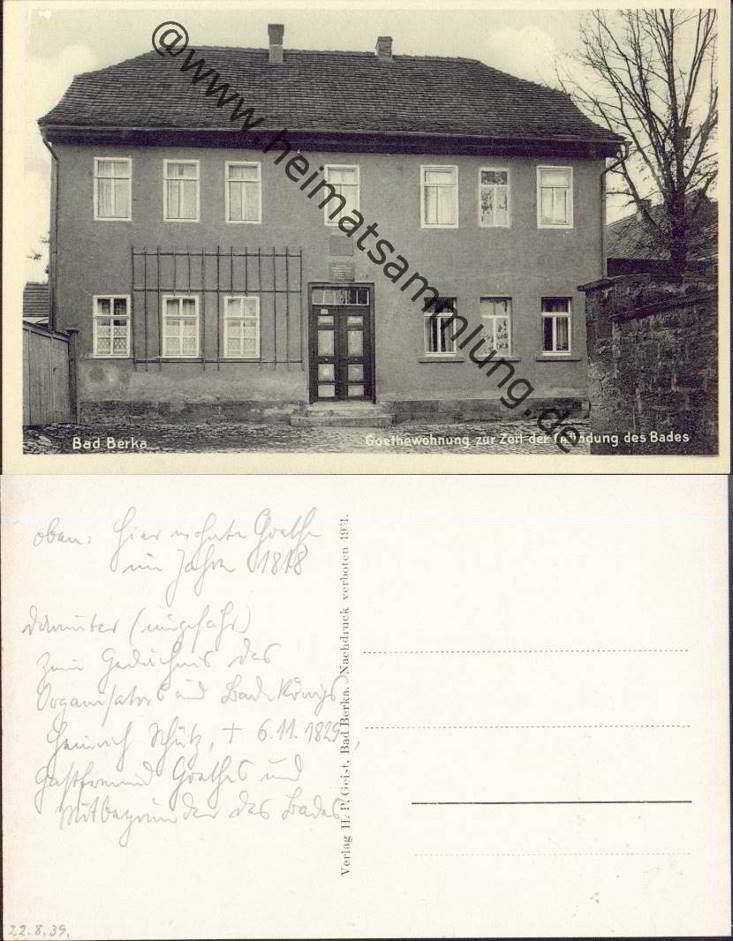 @www.heimatsammlung.de
Bad Berka
Goethewohnung zur Zeit der Gründung des Bades
oben: Hier wohnte Goethe
im Jahre 1818
Darunter (ungefähr)
Zum Gedächtnis des
Organisators und Badekönigs
Heinrich Schütz, † 6.11.1829,
Gastfreund Goethes und
Mitbegründer des Bades
22.8.39.
Verlag H. P. Geist, Bad Berka. Nachdruck verboten 1931.